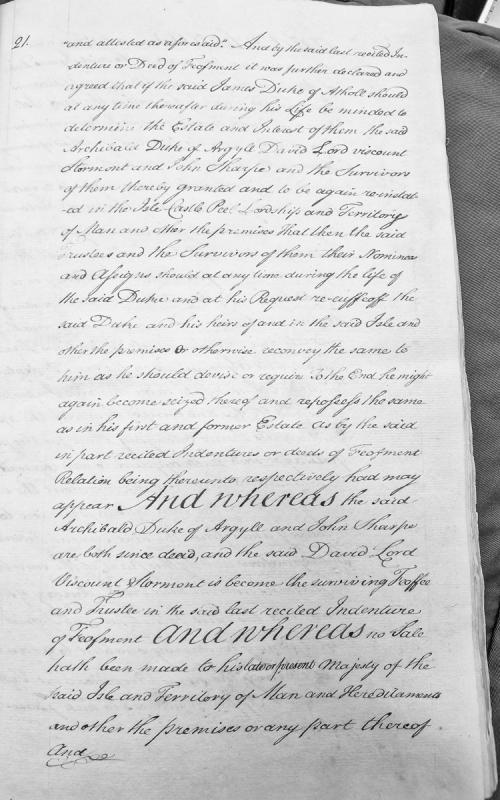 91.
"and attested as aforesaid". And by the said last recited In-
denture or Deed of Feofment it was further declared and
agreed that if the said James Duke of Atholl should
at any time thereafter during his Life be minded to
determine the Estate and Interest of them the said
Archibald Duke of Argyll David Lord viscount
Stormont and John Sharpe and the Survivors
of them thereby granted and to be again re-instat
-ed in the Isle Castle Peel Lordship and Territory
of Man and other the premises that then the said
Trustees and the Survivors of them their Nominees
and Assigns should at any time during the life of
the said Duke and at his Request re-enfeoff the
said Duke and his heirs of and in the said Isle and
other the premises Or otherwise reconvey the same to
him as he should devise or require To the End he might
again become seized thereof and repossess the same
as in his first and former Estate as by the said
in part recited Indentures or deeds of Feofment
Relation being thereunto respectively had may
appear And whereas the said
Archibald Duke of Argyll and John Sharpe
are both since dead, and the said David Lord
Viscount Stormont is become the surviving Feoffee
and Trustee in the said last recited Indenture
of Feofment And whereas no Sale
hath been made to his late or present Majesty of the
said Isle and Territory of Man and Hereditaments
and other the premises or any part thereof
And